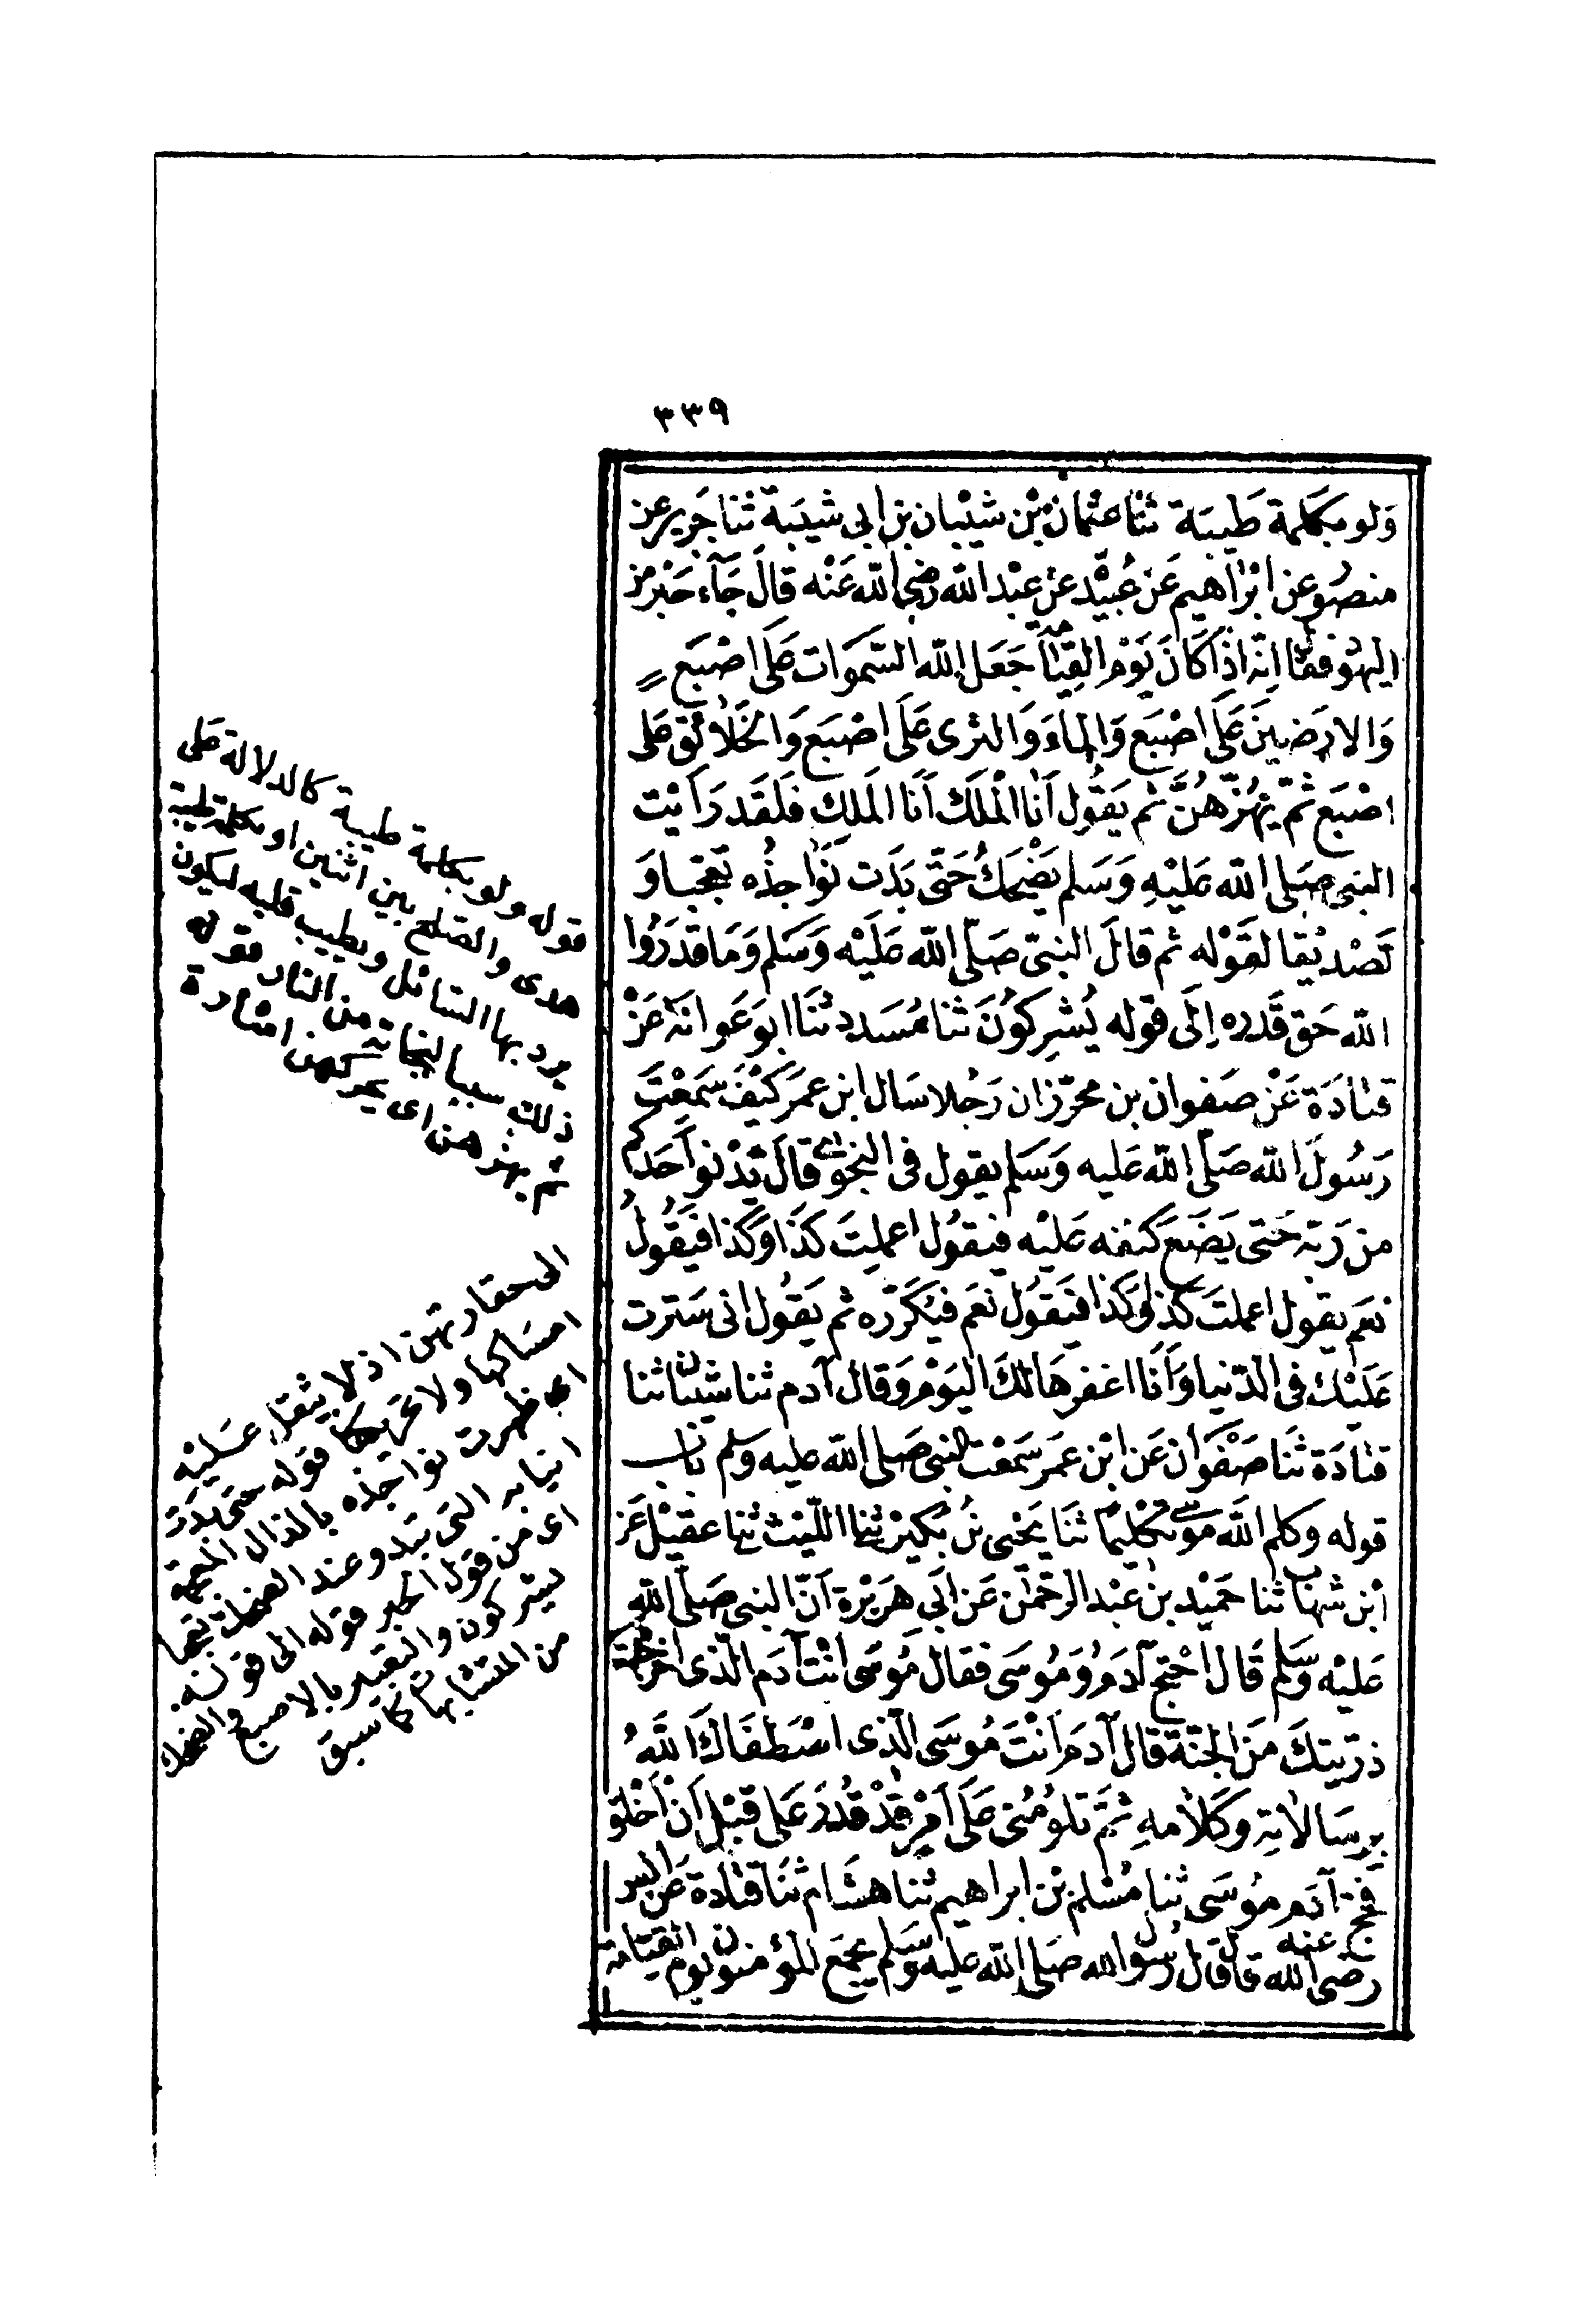 ٣٣٩
وَلو بكَلمة طَيبَة ثنَا عثمان بْن شَيْبان بن ابي شيبَة ثنا جَرير عن
منصُور عن ابْراهيم عَن عُبَيْد عن عبْد الله رَضي الله عَنْه قالَ جَآء حَبْر من
اليهُود فقال انّه اذا كانَ يَوْم القِيامة جَعَل الله السَّموَات عَلى اصْبَع
وَالارَضينَ عَلَى اصْبَع وَالماءَ وَالثرى عَلَى اصْبَع وَالخَلائق عَلى
اصْبَع ثمّ يَهُزّهُنَّ ثم يَقُول اَنا الْملَك اَنَا المَلك فلَقَد رَاَيْت
النبى صَلى الله عَليْهِ وَسَلم يَضْحَكُ حَتّى بَدَت نَوَاجذُه تعجبا وَ
تَصْديْقا لقَوْله ثم قالَ النبىّ صَلّى الله عَلَيْه وَسَلم وَمَا قدَرُوا
الله حَق قَدره اِلَى قوله يُشركُونَ ثنا مُسَدد ثنَا ابوعَوانة عَنْ
قتادَة عَنْ صَفوان بن محرّز ان رَجُلا سَال ابن عمَر كَيْفَ سَمعْتَ
رَسُولَ الله صَلّى الله عَليه وَسَلم يقول فى النجوَى قالَ يَدْنو اَحَدكم
من رَبّه حَتى يَضَع كنفه عَليْه فيقوُل اعملتَ كذَا وَكذا فيَقُولُ
نعَم يقول اعملتَ كذا وكذا فيَقوُل نعَم فيُكَرّره ثم يَقوُل انى سَترت
عَلَيْك فى الدّنيا وَاَنَا اغفرهَا لكَ اليَوْم وَقال آدم ثنا شيبان ثنا
قتادَة ثنَا صَفوَان عَن ابْن عمَر سَمعْت النبى صَلى الله عليه وسلم باب
قوله وكلم الله موسى تكليما ثنَا يَحْيى بْنُ بُكيْر ثنا الليْث ثنا عقيْل عَن
ابْن شهَاب ثنا حمَيْد بن عَبْد الرحْمٰن عَن اَبي هرَيْرة اَنّ النبى صَلى الله
عَليْه وَسلم قَال احْتج آدَمُ وَمُوسَى فقال مُوسَى انْت آدَم الّذى اخرَجت
ذرّيتكَ مَن الجنّة قال آدَم اَنْتَ مُوسَى الّذى اصْطفَاكَ اللهُ
برسَالاتهِ وَكَلامهِ ثمَّ تلوُمُنى عَلَى اَمْر قدْ قُدرَ عَلي قبْل اَنْ اُخْلَق
فحَج آدَم موُسَى ثنا مُسْلم بْن ابراهيم ثنا هشَام ثنَا قتادَة عَن انس
رضى الله عنه قال قال رسُول الله صَلى الله عليه وسَلم يجمَع المؤمنون يوم القيَامة
قوله ولو بكلمة طيبة كالدلالة على
هدى والصلح بين اثنين او بكلمة طيبة
يرد بها السّائل ويطيب قلبه ليكون
ذلك سببا لنجاته من النار قوله
ثم يهزهن اى يحركهن اشارة
الى حقارتهن اذ لا يثقل عَليْه
امسَاكها ولا تحريكها قوله حتى بَدَت
اى ظهرت نواجذه بالذال المعجمة
انيابه التى تبَدو عند الضحك تعجبا
اى من قول الحبر قوله الى قوله
يشركون والتعبير بالاصبع والضحك
من المتشابه كما سبق